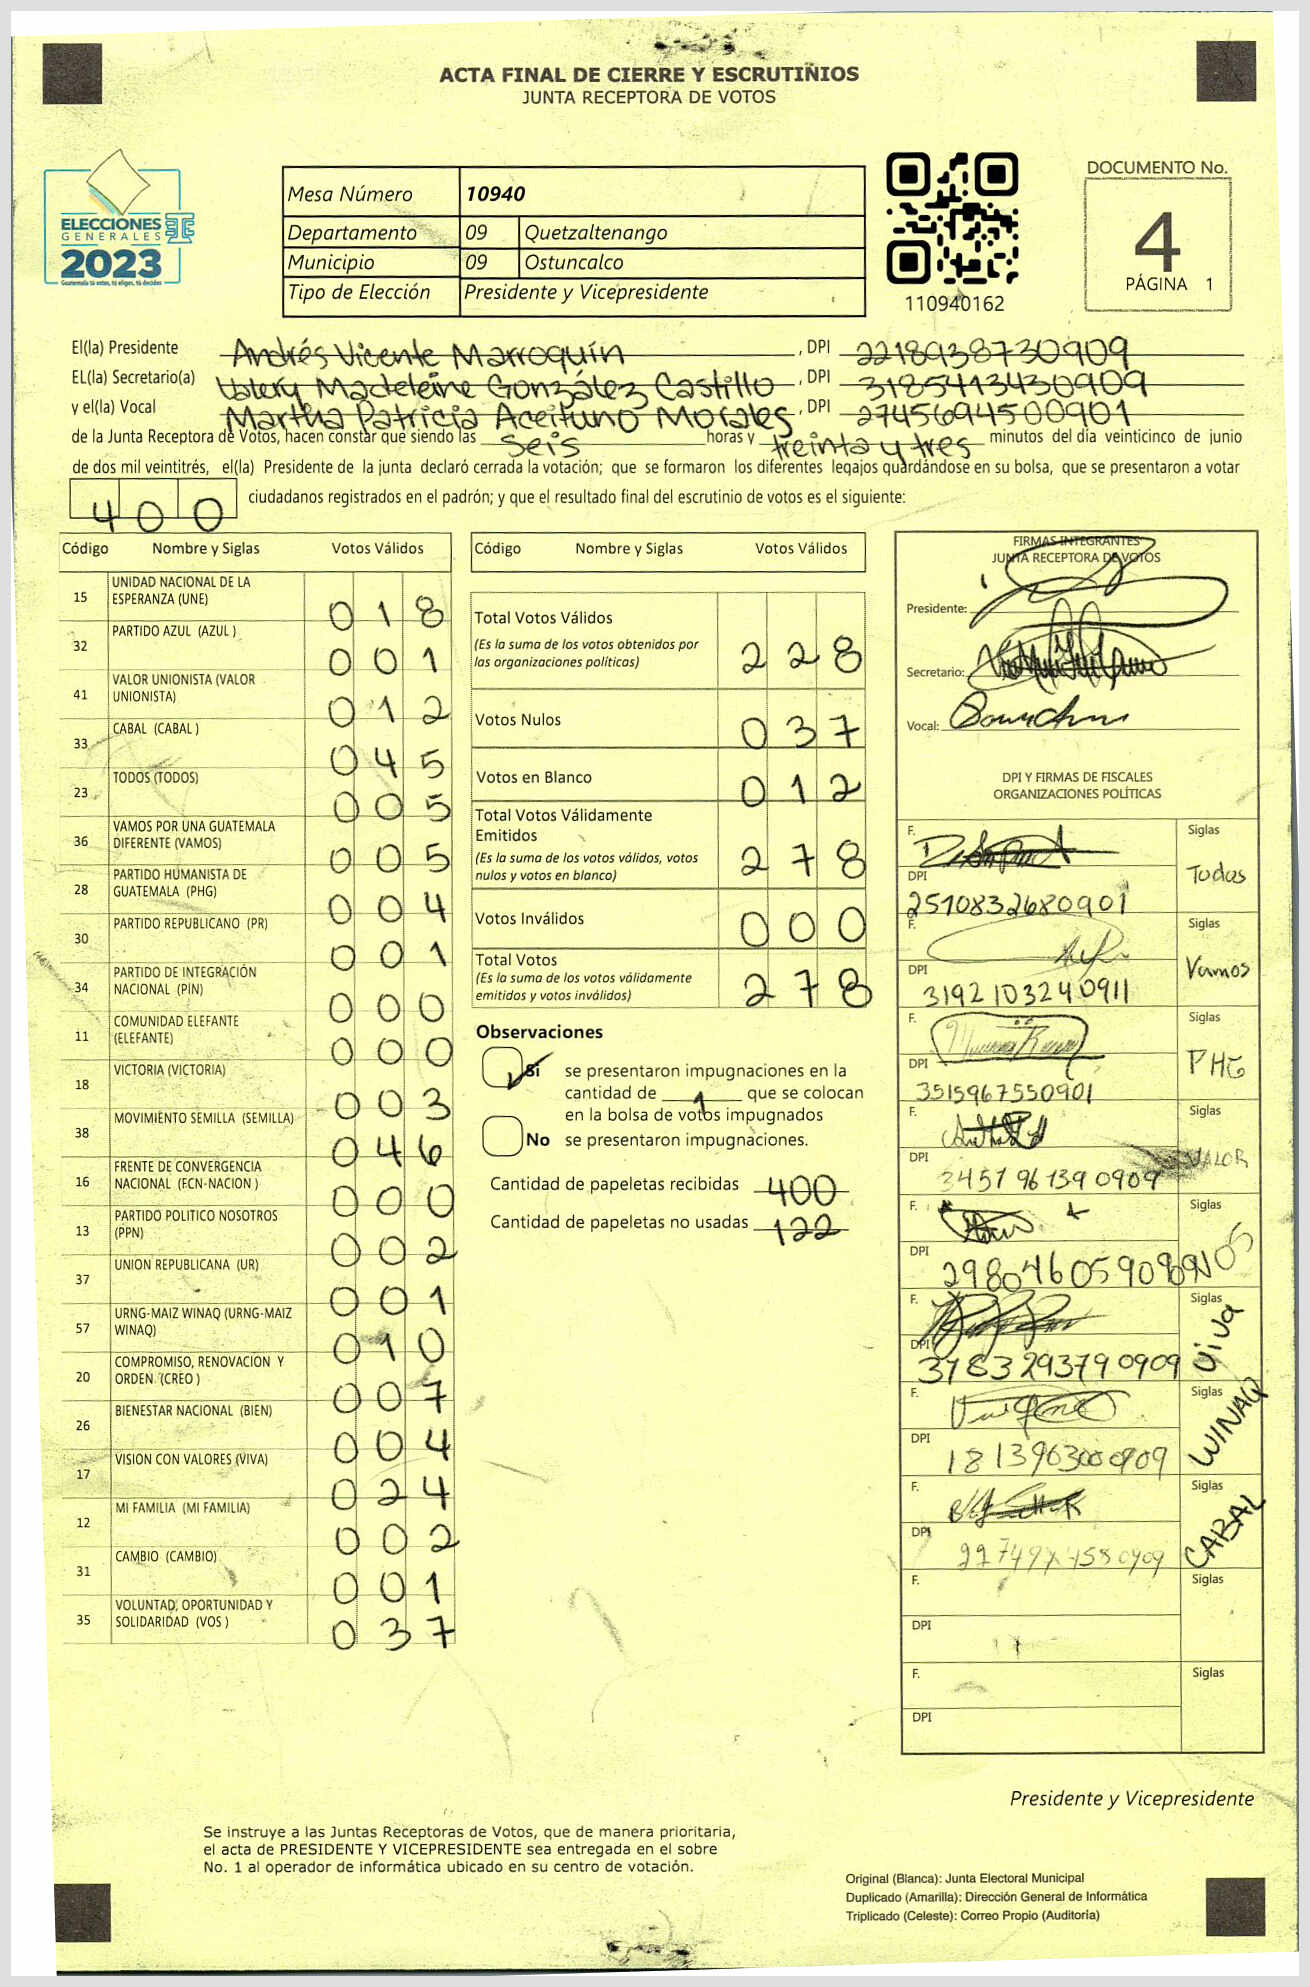 ACTA FINAL DE CIERRE Y ESCRUTINIOS
JUNTA RECEPTORA DE VOTOS
ELECCIONES
GENERALES
2023
Guatemala tú votas, tú eliges, tú decides
Mesa Número 10940
Departamento 09 Quetzaltenango
Municipio 09 Ostuncalco
Tipo de Elección Presidente y Vicepresidente
110940162
DOCUMENTO No.
4
PÁGINA 1
El(la) Presidente Andrés Vicente Marroquín, DPI 2218938730909
EL(la) Secretario(a) Valery Madeleine González Castillo, DPI 3185413430909
y el(la) Vocal Martha Patricia Aceituno Morales, DPI 2745694500901
de la Junta Receptora de Votos, hacen constar que siendo las seis horas y treinta y tres minutos del día veinticinco de junio
de dos mil veintitrés, el(la) Presidente de la junta declaró cerrada la votación; que se formaron los diferentes legajos guardándose en su bolsa, que se presentaron a votar
400 ciudadanos registrados en el padrón; y que el resultado final del escrutinio de votos es el siguiente:
Código Nombre y Siglas Votos Válidos
15 UNIDAD NACIONAL DE LA ESPERANZA (UNE) 018
32 PARTIDO AZUL (AZUL ) 001
41 VALOR UNIONISTA (VALOR UNIONISTA) 012
33 CABAL (CABAL ) 045
23 TODOS (TODOS) 005
36 VAMOS POR UNA GUATEMALA DIFERENTE (VAMOS) 005
28 PARTIDO HUMANISTA DE GUATEMALA (PHG) 004
30 PARTIDO REPUBLICANO (PR) 001
34 PARTIDO DE INTEGRACIÓN NACIONAL (PIN) 000
11 COMUNIDAD ELEFANTE (ELEFANTE) 000
18 VICTORIA (VICTORIA) 003
38 MOVIMIENTO SEMILLA (SEMILLA) 046
16 FRENTE DE CONVERGENCIA NACIONAL (FCN-NACION ) 000
13 PARTIDO POLITICO NOSOTROS (PPN) 002
37 UNION REPUBLICANA (UR) 001
57 URNG-MAIZ WINAQ (URNG-MAIZ WINAQ) 010
20 COMPROMISO, RENOVACION Y ORDEN (CREO ) 007
26 BIENESTAR NACIONAL (BIEN) 004
17 VISION CON VALORES (VIVA) 024
12 MI FAMILIA (MI FAMILIA) 002
31 CAMBIO (CAMBIO) 001
35 VOLUNTAD, OPORTUNIDAD Y SOLIDARIDAD (VOS ) 037
Código Nombre y Siglas Votos Válidos
Total Votos Válidos
(Es la suma de los votos obtenidos por las organizaciones políticas) 228
Votos Nulos 037
Votos en Blanco 012
Total Votos Válidamente Emitidos
(Es la suma de los votos válidos, votos nulos y votos en blanco) 278
Votos Inválidos 000
Total Votos
(Es la suma de los votos válidamente emitidos y votos inválidos) 278
Observaciones
Si se presentaron impugnaciones en la
cantidad de 1 que se colocan
en la bolsa de votos impugnados
No se presentaron impugnaciones.
Cantidad de papeletas recibidas 400
Cantidad de papeletas no usadas 122
FIRMAS INTEGRANTES
JUNTA RECEPTORA DE VOTOS
Presidente:
Secretario:
Vocal:
DPI Y FIRMAS DE FISCALES
ORGANIZACIONES POLÍTICAS
F. Siglas Todos
DPI 2510832680901
F. Siglas Vamos
DPI 3192103240911
F. Siglas PHG
DPI 3515967550901
F. Siglas VALOR
DPI 3457961390909
F. Siglas VOS
DPI
F. Siglas Viva
DPI 3183293790909
F. Siglas WINAQ
DPI 1813963000909
F. Siglas CABAL
DPI
F. Siglas
DPI
F. Siglas
DPI
Presidente y Vicepresidente
Se instruye a las Juntas Receptoras de Votos, que de manera prioritaria,
el acta de PRESIDENTE Y VICEPRESIDENTE sea entregada en el sobre
No. 1 al operador de informática ubicado en su centro de votación.
Original (Blanca): Junta Electoral Municipal
Duplicado (Amarilla): Dirección General de Informática
Triplicado (Celeste): Correo Propio (Auditoría)